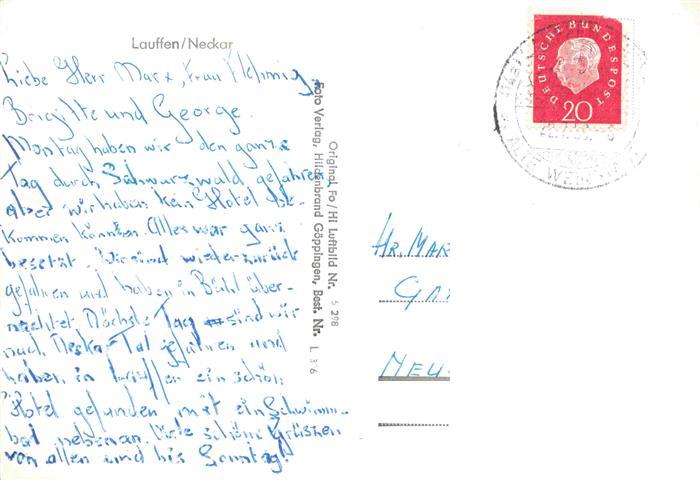 Lauffen/Neckar
Liebe Herr Marx, Frau
Brigitte und George.
Montag haben wir den ganze
Tag durch Schwarzwald gefahren
aber wir haben kein Hotel be-
kommen könnten. Alles war ganz
besetzt. Wir sind wieder zurück
gefahren und haben in Bühl über-
nachtet. Nächste Tag sind wir
nach Neckar Tal gefahren und
haben in Lauffen ein schön
Hotel gefunden mit ein Schwimm-
bad nebenan. Viele schöne Grüssen
von allen und bis Sonntag!
Original Fo/Hi Luftbild Nr. 5 298
Foto Verlag, Hildenbrand Göppingen, Best. Nr. L 3 6
DEUTSCHE BUNDESPOST
20
HR. MAR
GA
NEU